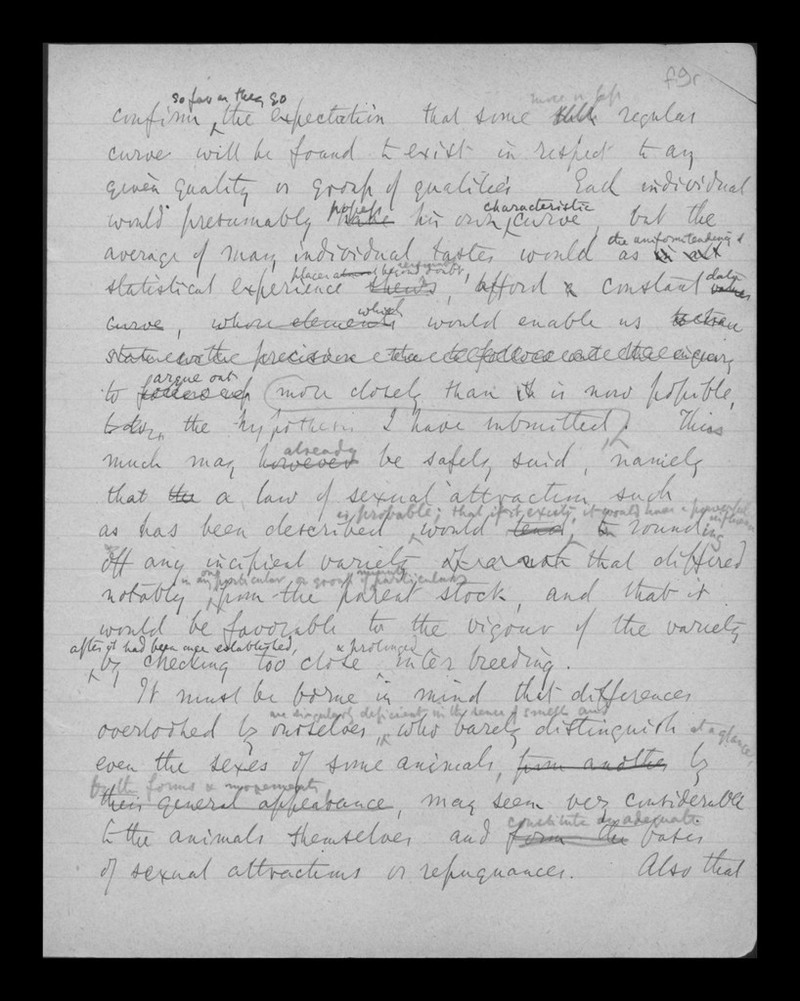 f9r
so far as they go more or less
confirm the expectation that some regular
curve will be found to exist in respect to any
given quality or group of qualities Each individual
possess characteristic
would presumably have his own curve, but the
the uniform tendency of
average of many individual tastes would as is not
places beyond doubt, data
statistical experience shews, afford a constant values
which
curve, whose elements would enable us to
argue out
to follow up (more closely than it is now possible,
the hypothesis I have submitted). This
already
much may however be safely said, namely
that the a law of sexual attraction, such
is probable; that if it exists, it would have a powerful influence
as has been described would tend, to rounding
off any incipient variety that differed
in any one particular, or group of particulars
notably from the parent stock, and that it
would be favorable to the vigour of the variety
after it had been once established, & prolonged
by checking too close inter breeding.
It must be borne in mind that differences
are singularly deficient in the sense of smell and
overlooked by ourselves, who barely distinguish at a glance,
even the sexes of some animals, from another by
by the forms & movements
their general appearance, may seem very considerable
constitute an adequate
to the animals themselves and form the bases
of sexual attractions or repugnances. Also that